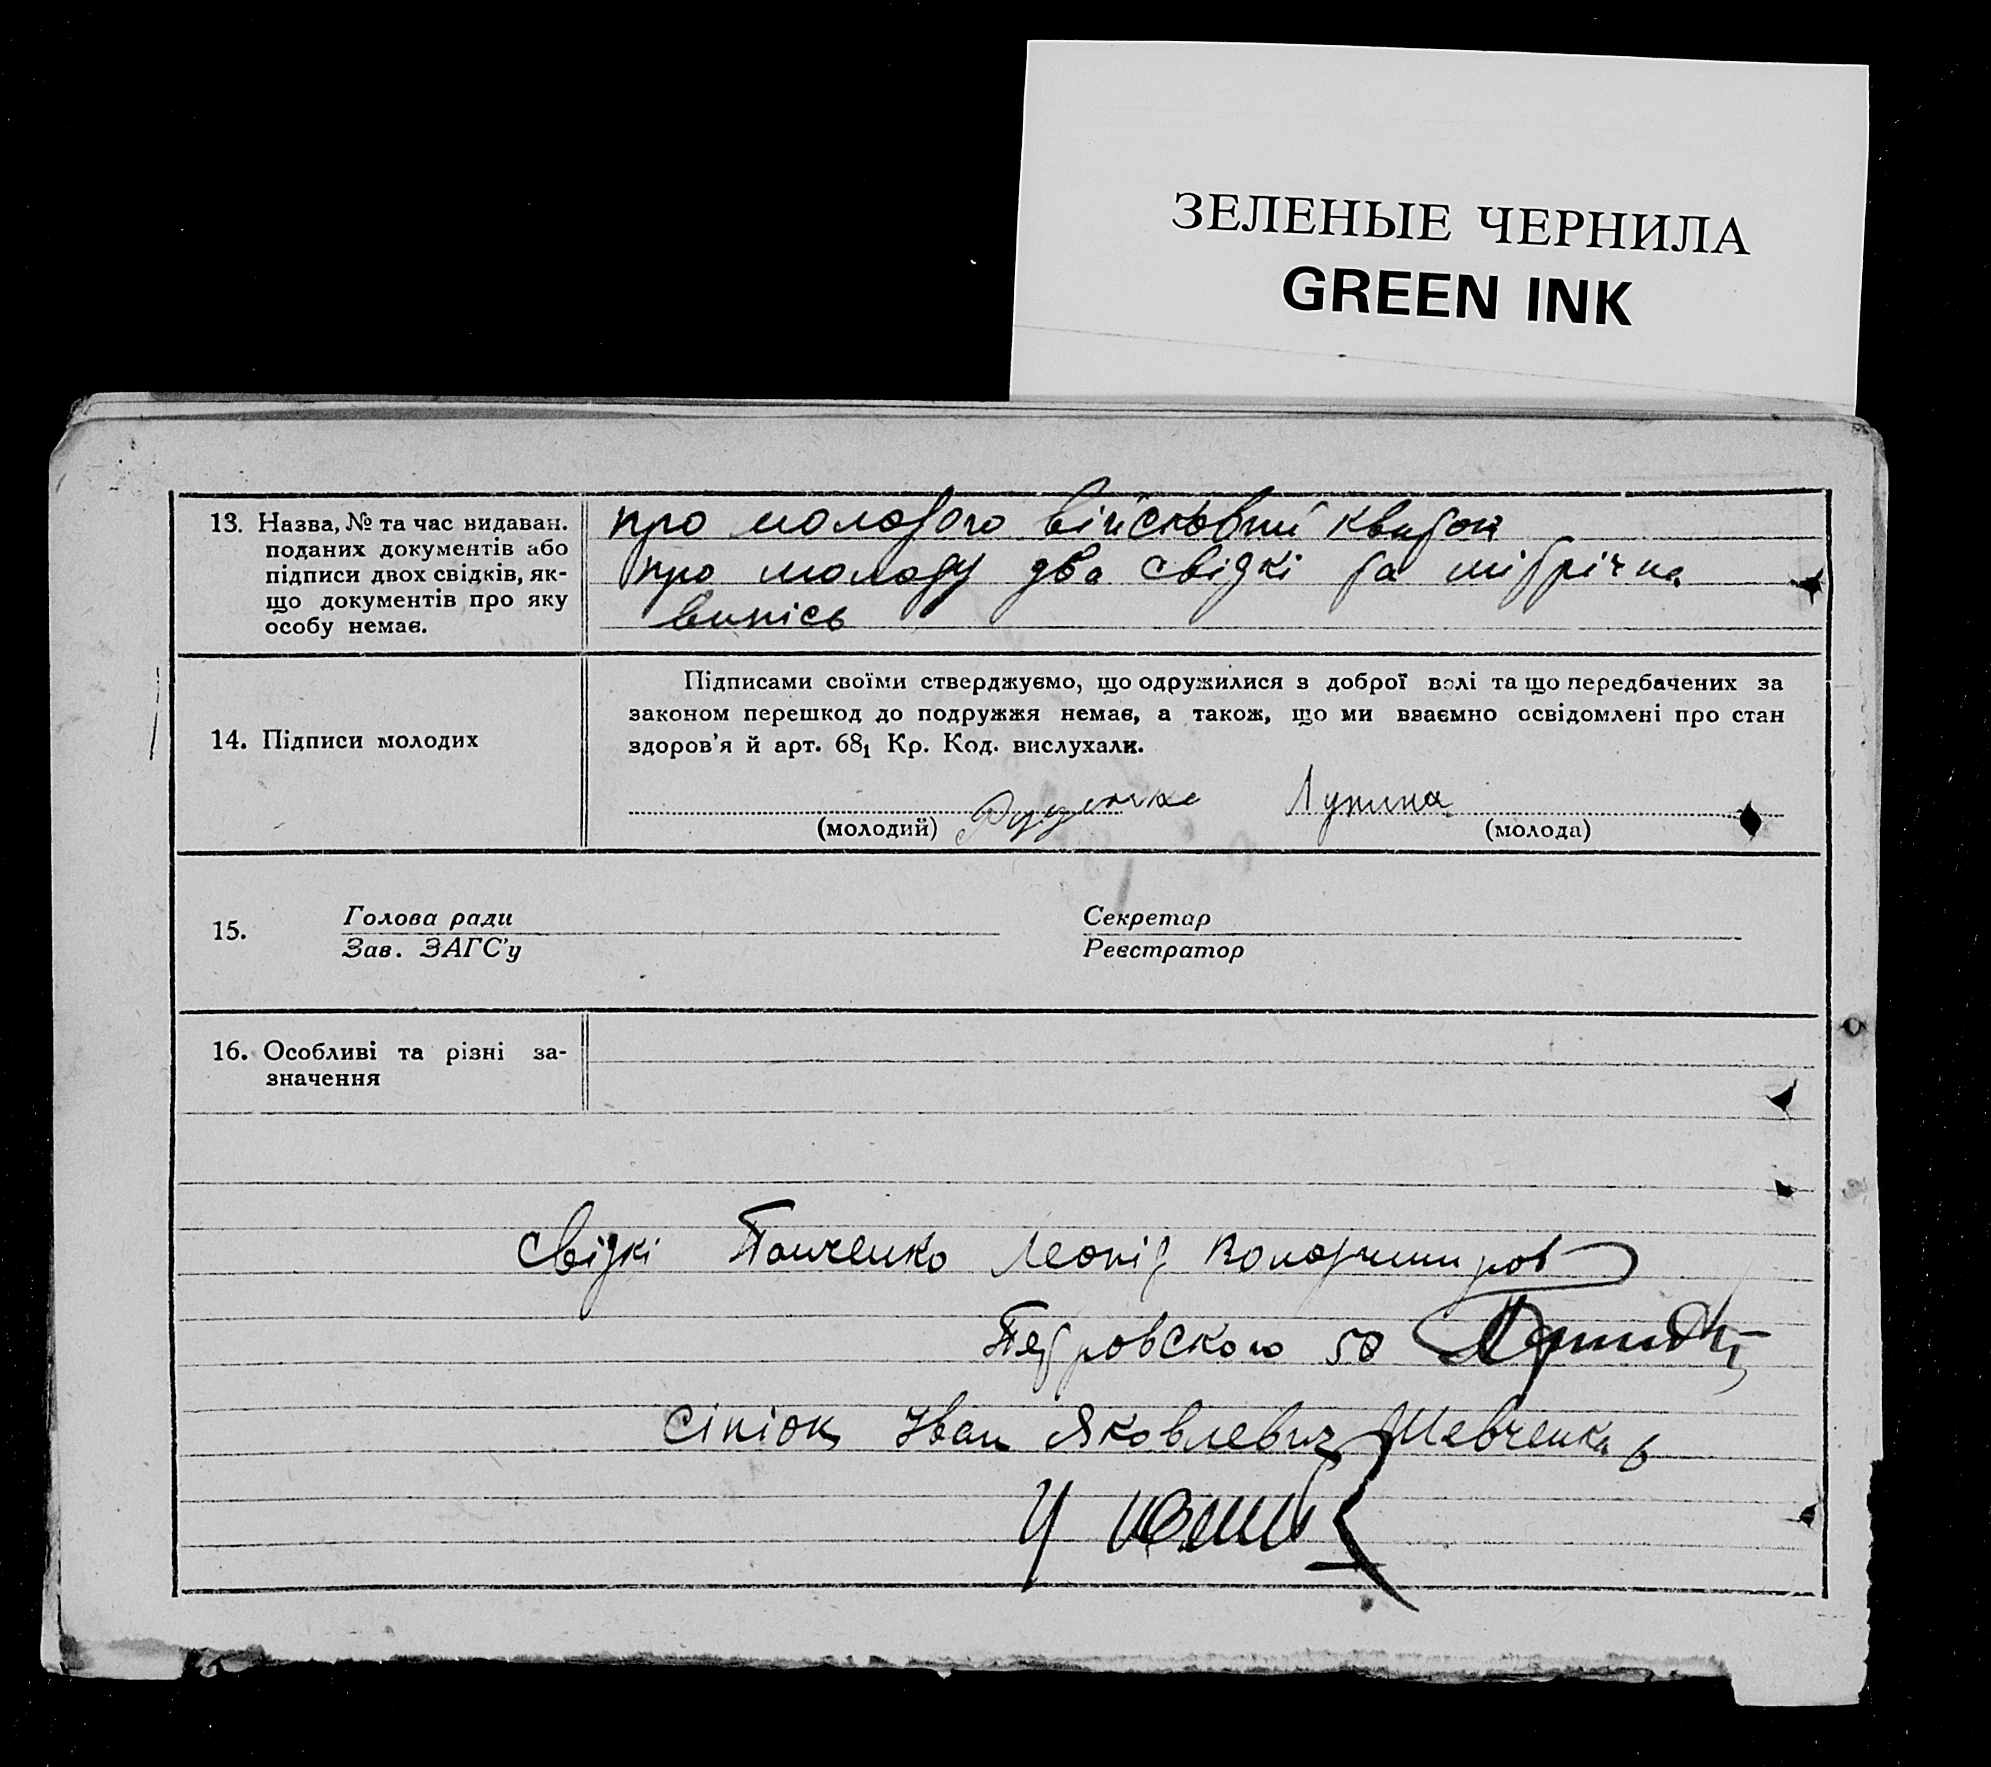 ЗЕЛЕНЫЕ ЧЕРНИЛА
GREEN INK
13. Назва, № та час видаван.
поданих документів або
підписи двох свідків, як-
що документів про яку
особу немає.
про молодого військовий квиток
про молоду два свідкі та мітрічна
випісь
14. Підписи молодих
Підписами своїми стверджуємо, що одружилися з доброї волі та що передбачених за
законом перешкод до подружжя немає, а також, що ми взаємно освідомлені про стан
здоров'я й арт. 68₁ Кр. Код. вислухали.
Руденко
(молодий)
(молода)
15.
Голова ради
Зав. ЗАГС'у
Секретар
Реєстратор
16. Особливі та різні за-
значення
свідкі Панченко Леонід
Петровского 50
Іван Яковлевич Шевченка 6